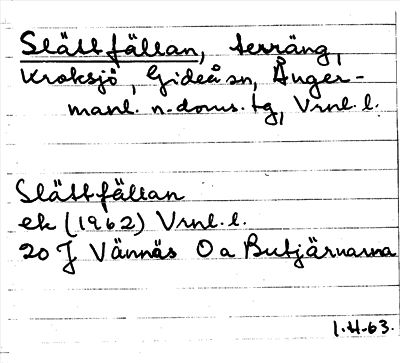 Slåttfällan, terräng,
Kroksjö, Gideå sn, Ånger-
manl. n. doms. tg, Vrnl. l.
Slåttfällan
ek (1962) Vrnl. l.
20 J Vännäs O a Butjärnarna
1.4.63.